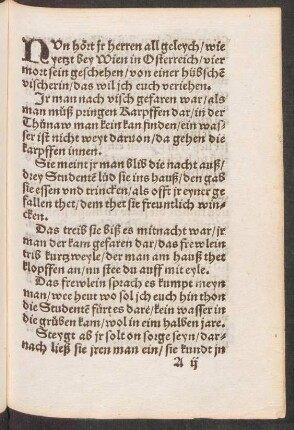 NUn hört jr herren all geleych/wie
yetzt bey Wien in Osterreich/vier
mort sein geschehen/von einer hübschē
vischerin/das wil jch euch veriehen.
Jr man nach visch gefaren war/als
man müß pringen Karpffen dar/in der
Thůnaw man kein kan finden/ein was-
ser ist nicht weyt daruon/da gehen die
karpffen innen.
Sie meint jr man blib die nacht auß/
drey Studentē lůd sie ins hauß/den gab
sie essen vnd trincken/als offt jr eyner ge
fallen thet/dem thet sie freuntlich win-
cken.
Das treib sie biß es mitnacht war/jr
man der kam gefaren dar/das frewlein
trib kurtzweyle/der man am hauß thet
klopffen an/nu stee du auff mit eyle.
Das frewlein sprach es kumpt meyn
man/wee heut wo sol jch euch hin thon
die Studentē fürt es dare/kein wasser in
die grůben kam/wol in eim halben jare.
Steygt ab jr solt on sorge seyn/dar-
nach ließ sie jren man ein/sie kundt jn
A ij